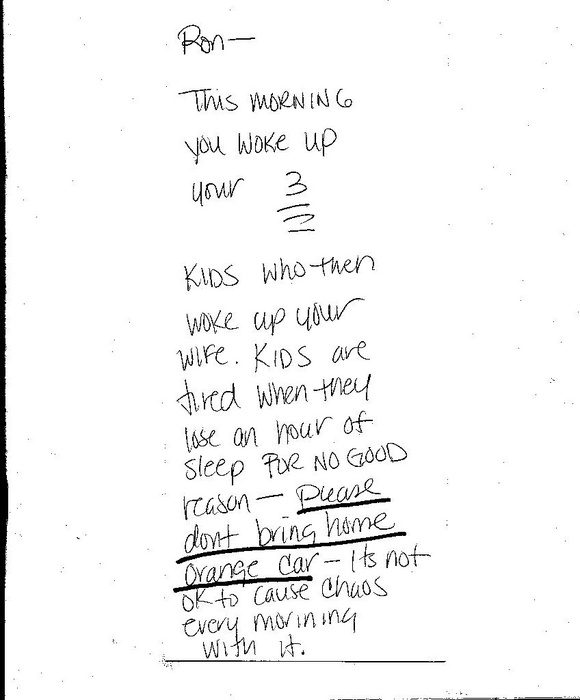 Ron—
This MORNING
you woke up
your 3
KIDS who then
woke up your
WIFE. KIDS are
tired when they
lose an hour of
sleep FOR NO GOOD
reason — please
dont bring home
orange car — Its not
OK to cause chaos
every morining
with it.